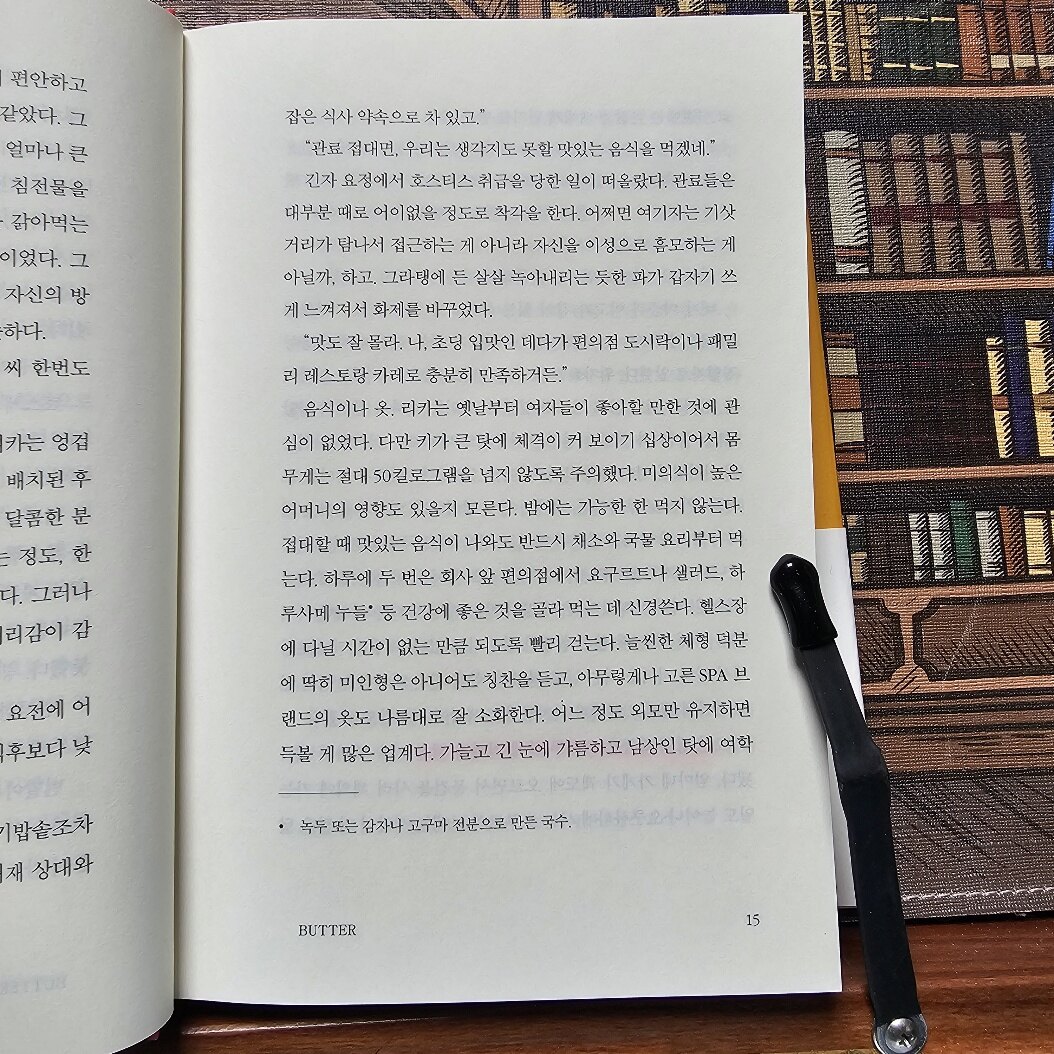 편안하고
같았다. 그
얼마나 큰
침전물을
갉아먹는
이었다. 그
자신의 방
하다.
씨 한번도
카는 엉겁
배치된 후
달콤한 분
는 정도, 한
다. 그러나
리감이 감
요전에 어
후보다 낮
기밥솥조차
재 상대와
잡은 식사 약속으로 차 있고.”
“관료 접대면, 우리는 생각지도 못할 맛있는 음식을 먹겠네.”
긴자 요정에서 호스티스 취급을 당한 일이 떠올랐다. 관료들은
대부분 때로 어이없을 정도로 착각을 한다. 어쩌면 여기자는 기삿
거리가 탐나서 접근하는 게 아니라 자신을 이성으로 흠모하는 게
아닐까, 하고. 그라탱에 든 살살 녹아내리는 듯한 파가 갑자기 쓰
게 느껴져서 화제를 바꾸었다.
“맛도 잘 몰라. 나, 초딩 입맛인 데다가 편의점 도시락이나 패밀
리 레스토랑 카레로 충분히 만족하거든.”
음식이나 옷. 리카는 옛날부터 여자들이 좋아할 만한 것에 관
심이 없었다. 다만 키가 큰 탓에 체격이 커 보이기 십상이어서 몸
무게는 절대 50킬로그램을 넘지 않도록 주의했다. 미의식이 높은
어머니의 영향도 있을지 모른다. 밤에는 가능한 한 먹지 않는다.
접대할 때 맛있는 음식이 나와도 반드시 채소와 국물 요리부터 먹
는다. 하루에 두 번은 회사 앞 편의점에서 요구르트나 샐러드, 하
루사메 누들• 등 건강에 좋은 것을 골라 먹는 데 신경쓴다. 헬스장
에 다닐 시간이 없는 만큼 되도록 빨리 걷는다. 늘씬한 체형 덕분
에 딱히 미인형은 아니어도 칭찬을 듣고, 아무렇게나 고른 SPA 브
랜드의 옷도 나름대로 잘 소화한다. 어느 정도 외모만 유지하면
득볼 게 많은 업계다. 가늘고 긴 눈에 갸름하고 남상인 탓에 여학
• 녹두 또는 감자나 고구마 전분으로 만든 국수.
BUTTER
15